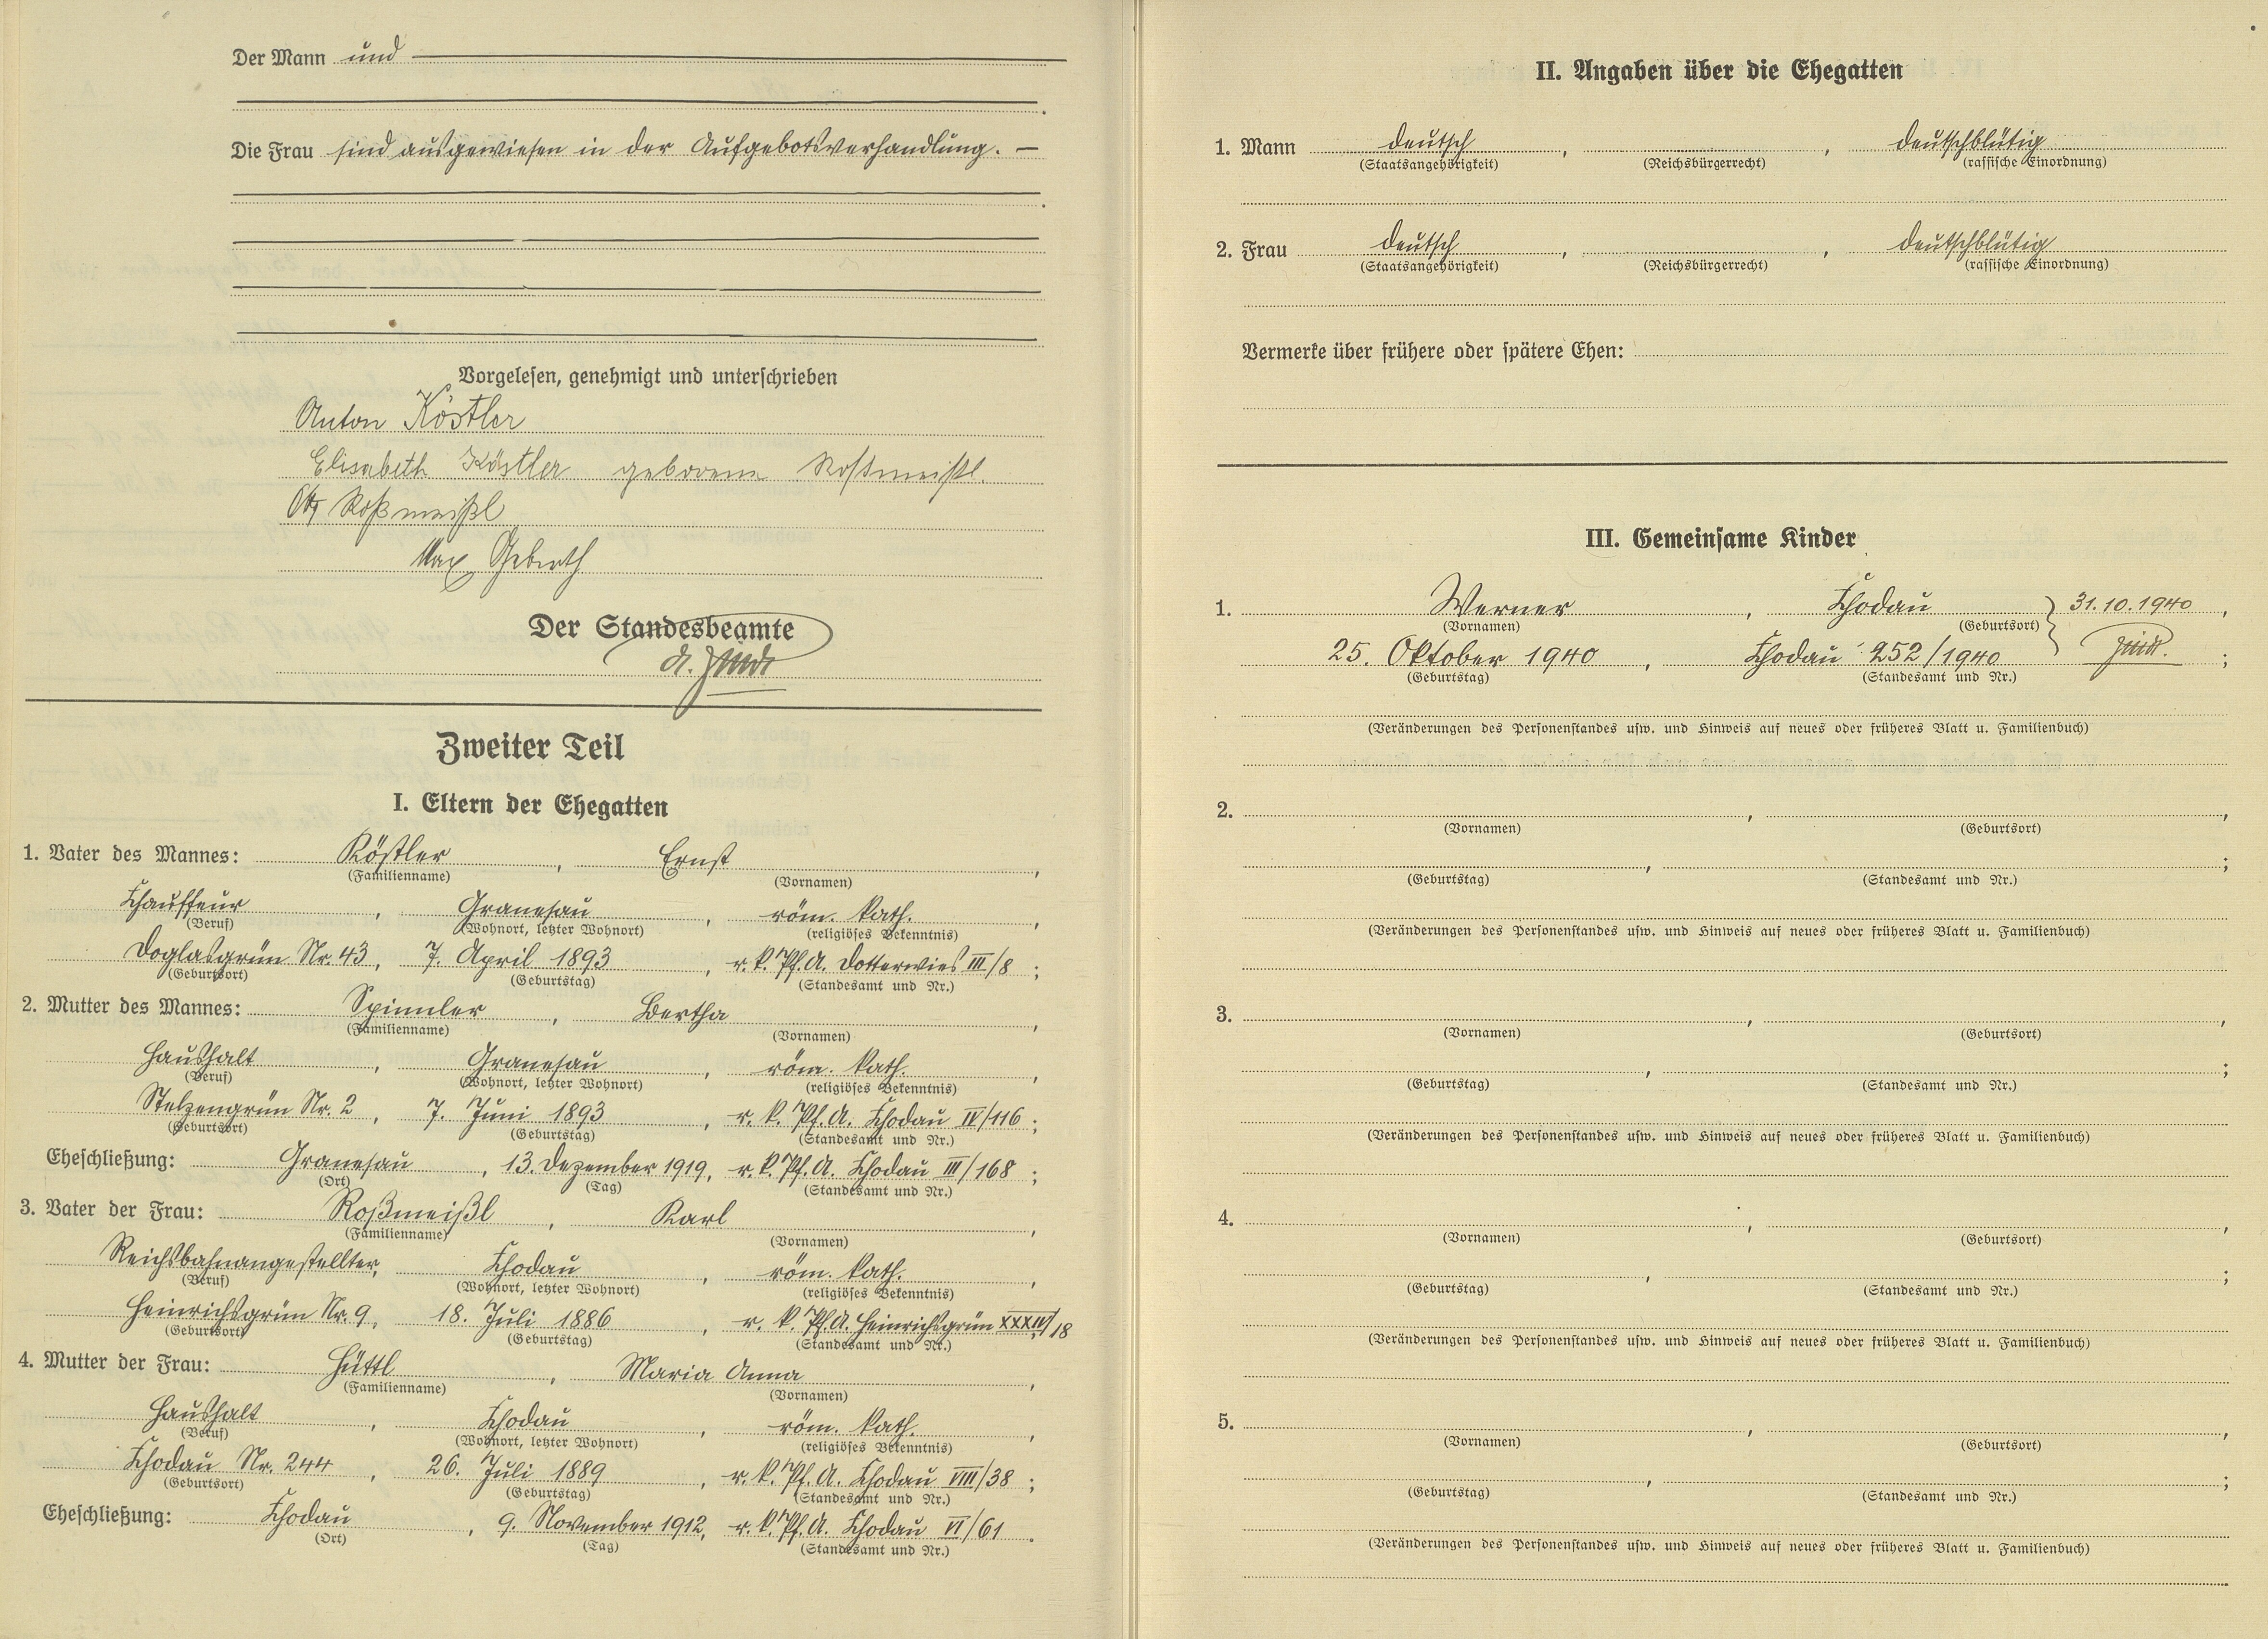 Der Mann und
Die Frau sind ausgewiesen in der Aufgebotsverhandlung. —
Vorgelesen, genehmigt und unterschrieben
Anton Köstler
Elisabeth Köstler geborene Rossmeißl.
Roßmeißl
Max
Der Standesbeamte
Zweiter Teil
I. Eltern der Ehegatten
1. Vater des Mannes: Köstler, Ernst,
(Familienname) (Vornamen)
Chauffeur, Granesau, röm. kath.,
(Beruf) (Wohnort, letzter Wohnort) (religiöses Bekenntnis)
Doglasgrün Nr. 43, 7. April 1893, r. k. Pf. A. Dotterwies III/8;
(Geburtsort) (Geburtstag) (Standesamt und Nr.)
2. Mutter des Mannes: Spinnler, Bertha,
(Familienname) (Vornamen)
Haushalt, Granesau, röm. kath.,
(Beruf) (Wohnort, letzter Wohnort) (religiöses Bekenntnis)
Stelzengrün Nr. 2, 7. Juni 1893, r. k. Pf. A. Chodau IV/116;
(Geburtsort) (Geburtstag) (Standesamt und Nr.)
Eheschließung: Granesau, 13. Dezember 1919, r. k. Pf. A. Chodau III/168;
(Ort) (Tag) (Standesamt und Nr.)
3. Vater der Frau: Roßmeißl, Karl,
(Familienname) (Vornamen)
Reichsbahnangestellter, Chodau, röm. kath.,
(Beruf) (Wohnort, letzter Wohnort) (religiöses Bekenntnis)
Heinrichsgrün Nr. 9, 18. Juli 1886, r. k. Pf. A. Heinrichsgrün XXXIV/18
(Geburtsort) (Geburtstag) (Standesamt und Nr.)
4. Mutter der Frau: Hüttl, Maria Anna,
(Familienname) (Vornamen)
Haushalt, Chodau, röm. kath.,
(Beruf) (Wohnort, letzter Wohnort) (religiöses Bekenntnis)
Chodau Nr. 244, 26. Juli 1889, r. k. Pf. A. Chodau VIII/38;
(Geburtsort) (Geburtstag) (Standesamt und Nr.)
Eheschließung: Chodau, 9. November 1912, r. k. Pf. A. Chodau VI/61.
(Ort) (Tag) (Standesamt und Nr.)
II. Angaben über die Ehegatten
1. Mann deutsch, , deutschblütig
(Staatsangehörigkeit) (Reichsbürgerrecht) (rassische Einordnung)
2. Frau deutsch, , deutschblütig
(Staatsangehörigkeit) (Reichsbürgerrecht) (rassische Einordnung)
Vermerke über frühere oder spätere Ehen:
III. Gemeinsame Kinder
1. Werner, Chodau } 31.10.1940,
(Vornamen) (Geburtsort)
25. Oktober 1940, Chodau 252/1940;
(Geburtstag) (Standesamt und Nr.)
(Veränderungen des Personenstandes usw. und Hinweis auf neues oder früheres Blatt u. Familienbuch)
2. , ,
(Vornamen) (Geburtsort)
, ;
(Geburtstag) (Standesamt und Nr.)
(Veränderungen des Personenstandes usw. und Hinweis auf neues oder früheres Blatt u. Familienbuch)
3. , ,
(Vornamen) (Geburtsort)
, ;
(Geburtstag) (Standesamt und Nr.)
(Veränderungen des Personenstandes usw. und Hinweis auf neues oder früheres Blatt u. Familienbuch)
4. , ,
(Vornamen) (Geburtsort)
, ;
(Geburtstag) (Standesamt und Nr.)
(Veränderungen des Personenstandes usw. und Hinweis auf neues oder früheres Blatt u. Familienbuch)
5. , ,
(Vornamen) (Geburtsort)
, ;
(Geburtstag) (Standesamt und Nr.)
(Veränderungen des Personenstandes usw. und Hinweis auf neues oder früheres Blatt u. Familienbuch)